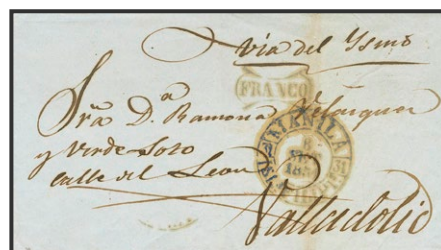 Via del Ysmo
FRANCO
Sra. Da. Ramona Velasquez
y Verde Soto
Calle del Leon
MANILA
Valladolid